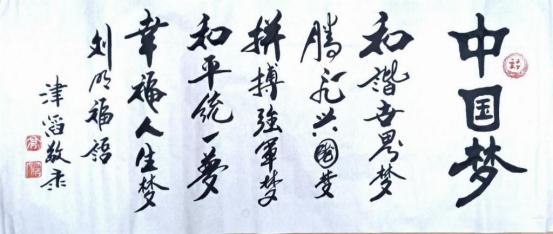 中国梦
和谐世界梦
腾飞兴国梦
拼搏强军梦
和平统一夢
幸福人生梦
刘明福语
津滔敬录